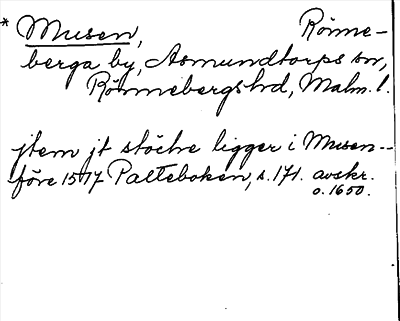 * Musen, Rönne-
berga by, Asmundtorps sn,
Rönnebergs hd, Malm. l.
jtem jt stöche ligger i Musen--
före 1517 Palteboken, s. 171. avskr.
o. 1650.